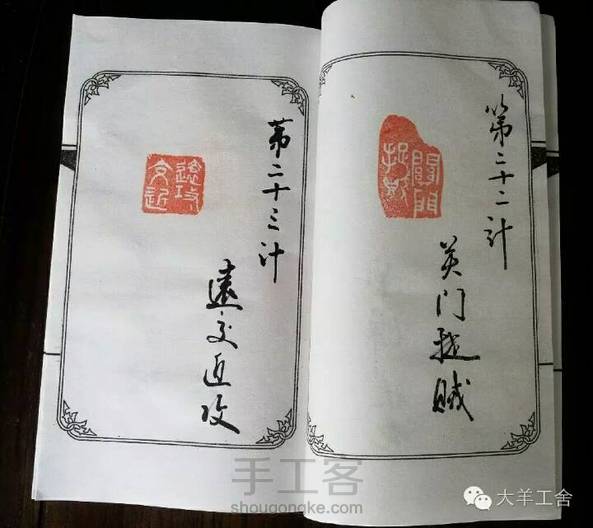 第二十二计
关门捉贼
關門
捉賊
第二十三计
遠交近攻
遠攻
交近
手工客
shougongke.com
大羊工舍